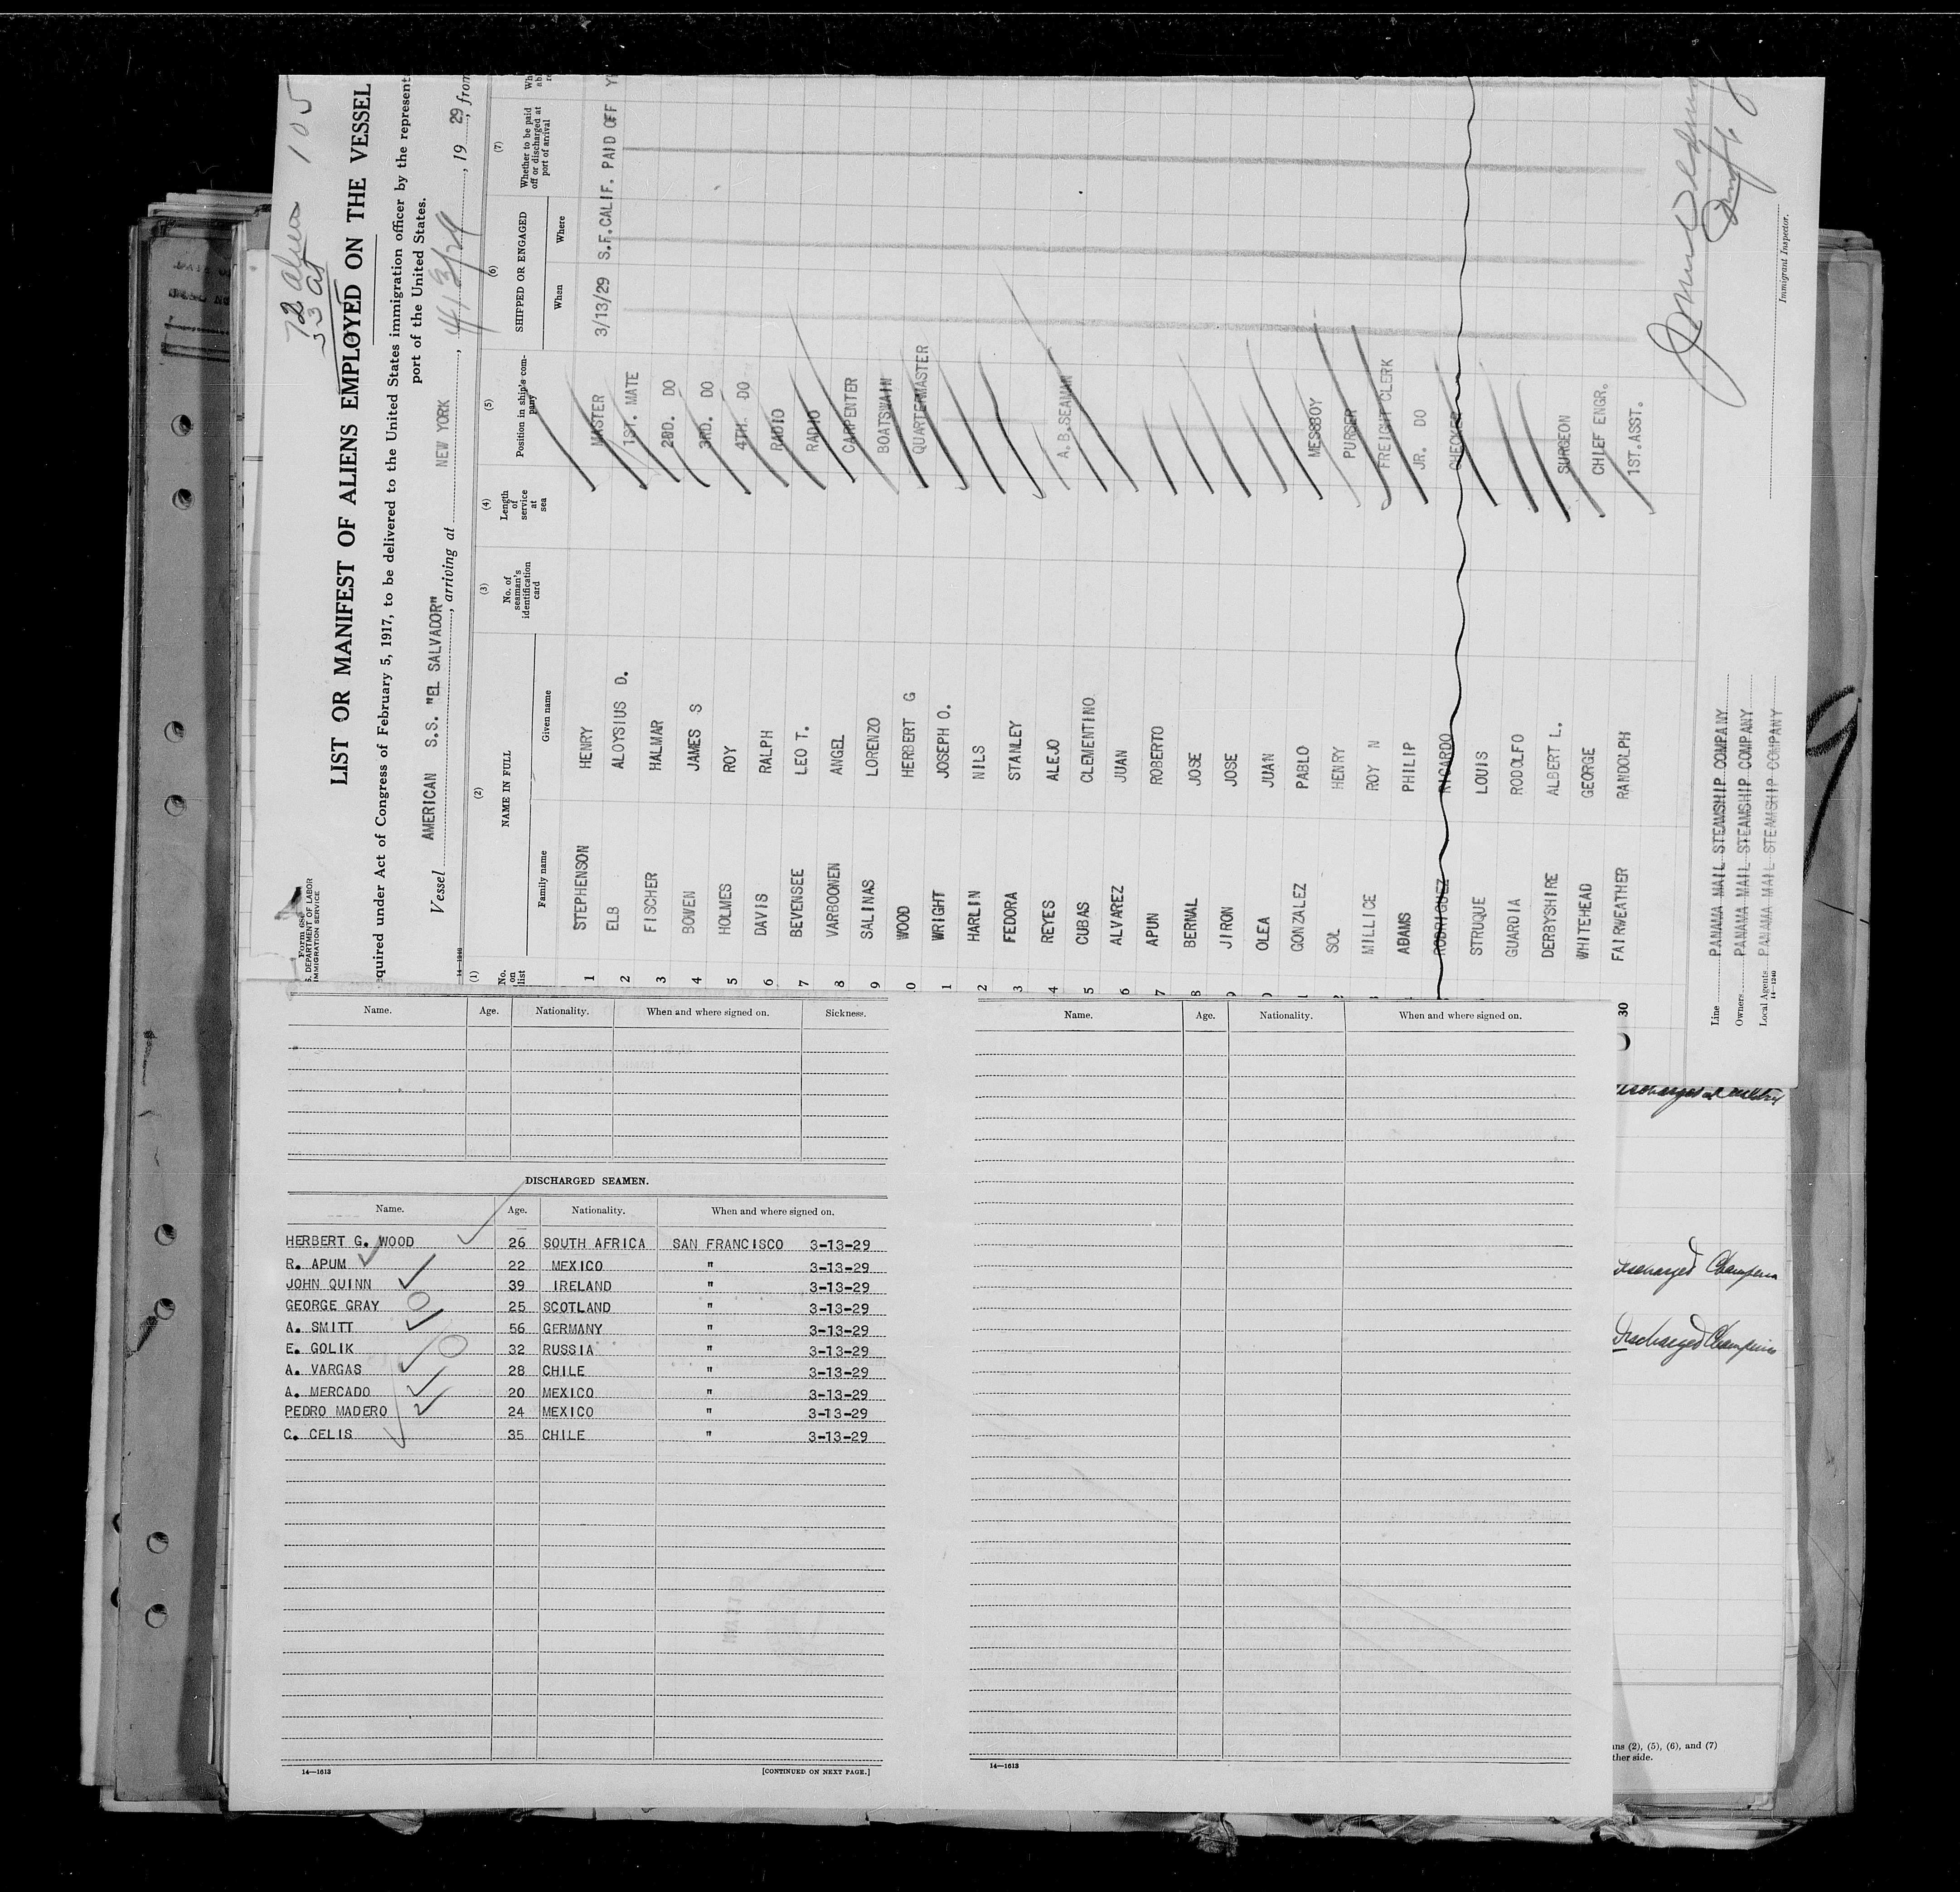 72 Aliens 105
33
LIST OR MANIFEST OF ALIENS EMPLOYED ON THE VESSEL
Form 680
DEPARTMENT OF LABOR
IMMIGRATION SERVICE
equired under Act of Congress of February 5, 1917, to be delivered to the United States immigration officer by the represent
port of the United States.
Vessel AMERICAN S.S. "EL SALVADOR", arriving at NEW YORK, 4/13/29, 1929, from
14—1240
(1) (2) (3) (4) (5) (6) (7)
No. on list
NAME IN FULL
Family name Given name
No. of seaman's identification card
Length of service at sea
Position in ship's company
SHIPPED OR ENGAGED
When Where
Whether to be paid off or discharged at port of arrival
1 STEPHENSON HENRY MASTER 3/13/29 S.F.CALIF. PAID OFF
2 ELB ALOYSIUS D. 1ST. MATE
3 FISCHER HALMAR 2ND. DO
4 BOWEN JAMES S 3RD. DO
5 HOLMES ROY 4TH. DO
6 DAVIS RALPH RADIO
7 BEVENSEE LEO T. RADIO
8 VARBOONEN ANGEL CARPENTER
9 SALINAS LORENZO BOATSWAIN
0 WOOD HERBERT G QUARTERMASTER
1 WRIGHT JOSEPH O.
2 HARLIN NILS
3 FEDORA STANLEY
4 REYES ALEJO A.B.SEAMAN
5 CUBAS CLEMENTINO
6 ALVAREZ JUAN
7 APUN ROBERTO
8 BERNAL JOSE
9 JIRON JOSE
0 OLEA JUAN
1 GONZALEZ PABLO MESSBOY
SOL HENRY PURSER
MILLICE ROY N FREIGHT CLERK
ADAMS PHILIP JR. DO
RODRIGUEZ RICARDO CHECKER
STRUQUE LOUIS
GUARDIA RODOLFO
DERBYSHIRE ALBERT L. SURGEON
WHITEHEAD GEORGE CHIEF ENGR.
30 FAIRWEATHER RANDOLPH 1ST.ASST.
Line PANAMA MAIL STEAMSHIP COMPANY
Owners PANAMA MAIL STEAMSHIP COMPANY
Local Agents PANAMA MAIL STEAMSHIP COMPANY
14—1240
Immigrant Inspector.
Name. Age. Nationality. When and where signed on. Sickness.
DISCHARGED SEAMEN.
Name. Age. Nationality. When and where signed on.
HERBERT G. WOOD 26 SOUTH AFRICA SAN FRANCISCO 3-13-29
R. APUM 22 MEXICO " 3-13-29
JOHN QUINN 39 IRELAND " 3-13-29
GEORGE GRAY 25 SCOTLAND " 3-13-29
A. SMITT 56 GERMANY " 3-13-29
E. GOLIK 32 RUSSIA " 3-13-29
A. VARGAS 28 CHILE " 3-13-29
A. MERCADO 20 MEXICO " 3-13-29
PEDRO MADERO 24 MEXICO " 3-13-29
C. CELIS 35 CHILE " 3-13-29
14—1613 [CONTINUED ON NEXT PAGE.]
Name. Age. Nationality. When and where signed on.
14—1613
Discharged
Discharged
ns (2), (5), (6), and (7)
ther side.